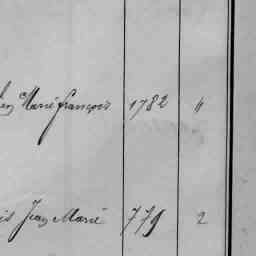 Marie françois 1782 "
Jean Marie 779 2